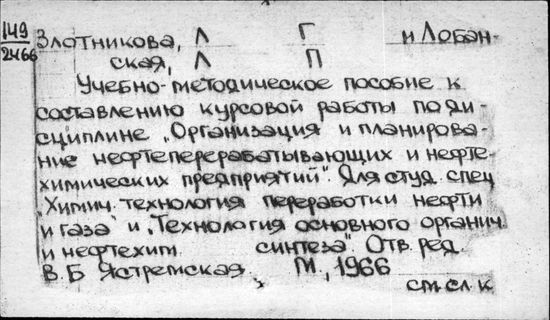 149
2466
Злотникова, Л Г и Лобан-
ская, Л П
Учебно-методическое пособие к
составлению курсовой работы по ди-
сциплине „Организация и планирова-
ние нефтеперерабатывающих и нефте-
химических предприятий". Для студ. спец
„Химич. технология переработки нефти
и газа" и „Технология основного органич.
и нефтехим синтеза". Отв. ред.
В. Б Ястремская. М., 1966
см. сл. к